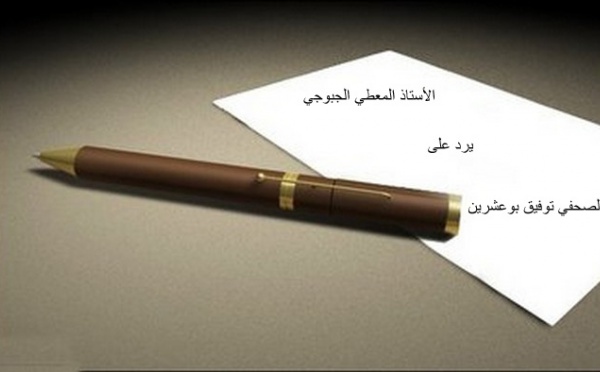 الأستاذ المعطي الجبوجي
يرد على
لصحفي توفيق بوعشرين